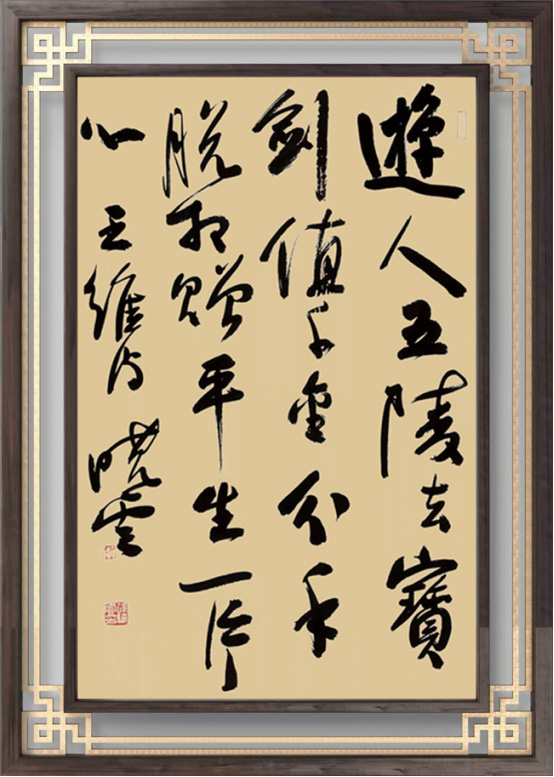 遊人五陵去寶
劍值千金分手
脱相贈平生一片
心 王維诗 晓雲